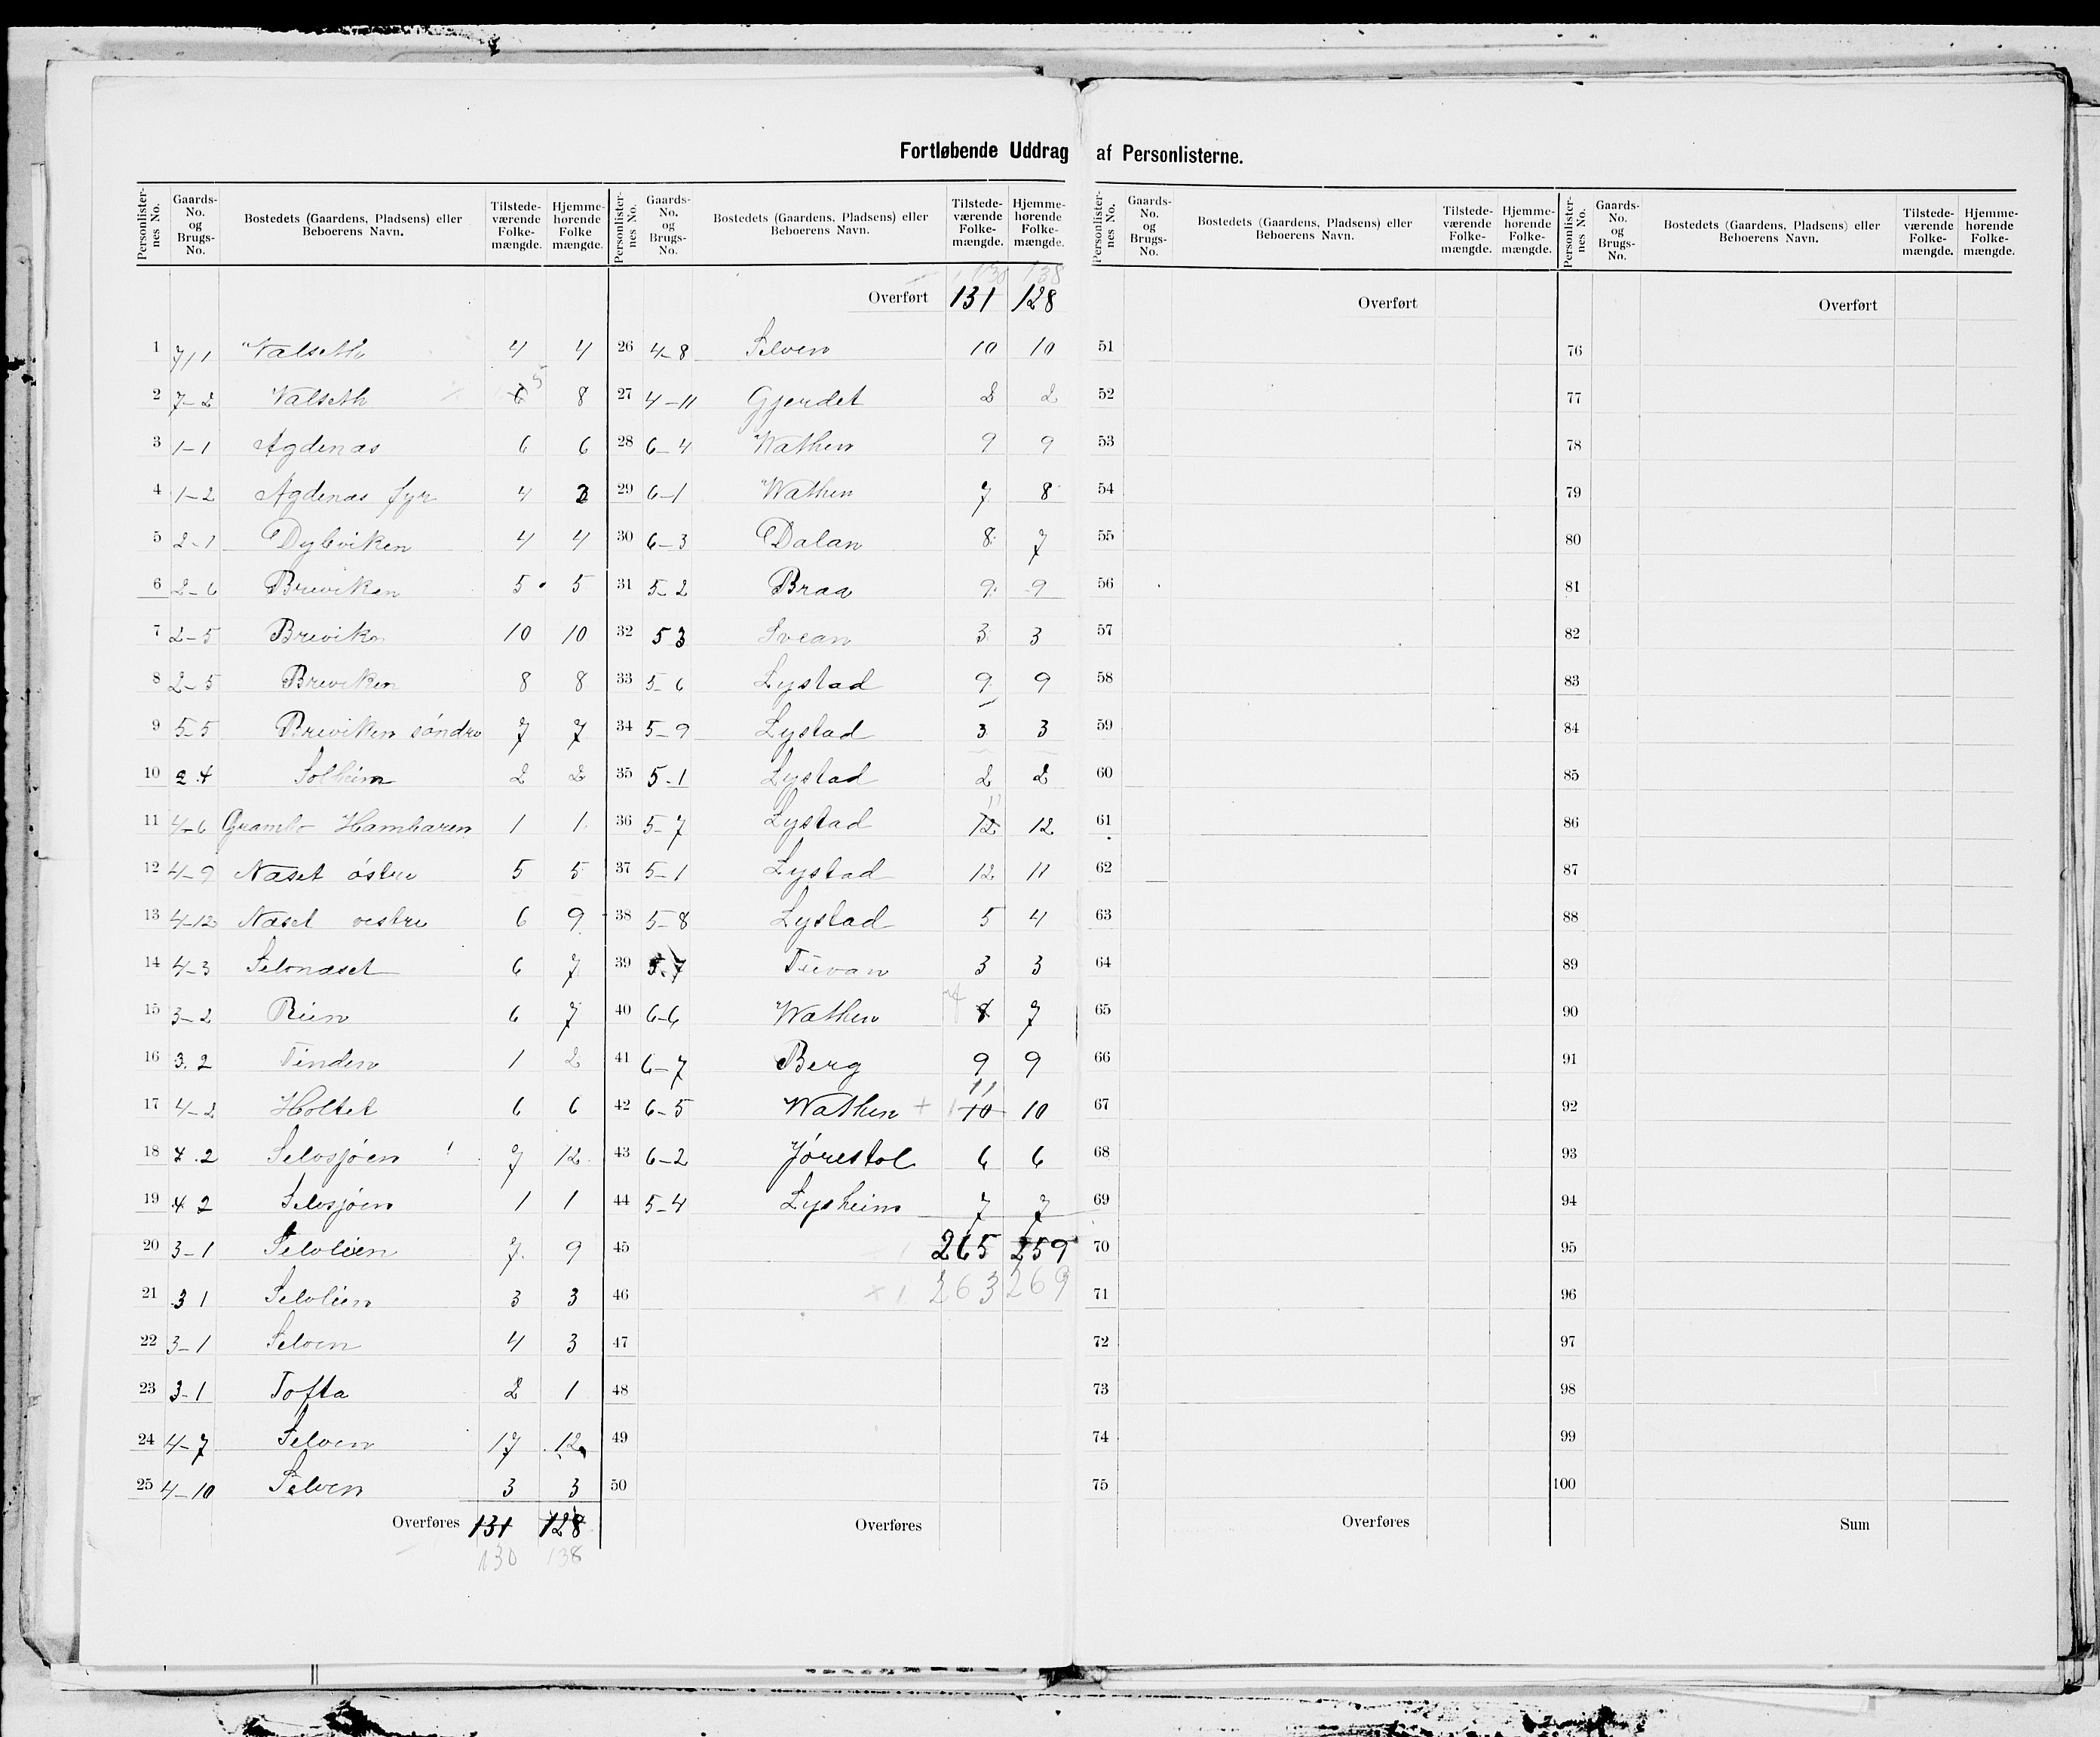 Fortløbende Uddrag af Personlisterne.
Personlisternes No. | Gaards-No. og Brugs-No. | Bostedets (Gaardens, Pladsens) eller Beboerens Navn. | Tilstedeværende Folkemængde. | Hjemmehørende Folkemængde.
1 7/1 Valseth 4 4
2 7-2 Valseth 6 5 8
3 1-1 Agdenæs 6 6
4 1-2 Agdenæs fyr 4 2
5 2-1 Dybviken 4 4
6 2-6 Breviken 5 5
7 2-5 Brevikn 10 10
8 2-5 Breviken 8 8
9 5-5 Breviken søndre 7 7
10 2.4 Solheim 2 2
11 4-6 Grambo Hambaren 1 1
12 4-9 Næset østre 5 5
13 4-12 Næset vestre 6 9
14 4-3 Selvnæset 6 7
15 3-2 Rien 6 7
16 3.2 Tinden 1 2
17 4-2 Holtet 6 6
18 4.2 Selvsjøen 7 12
19 4 2 Selvsjøen 1 1
20 3-1 Selvlien 7 9
21 3 1 Selvlien 3 3
22 3-1 Selven 4 3
23 3-1 Tofta 2 1
24 4-7 Selven 17 12
25 4-10 Selven 3 3
Overføres 131 128
130 138
130 138
Overført 131 128
26 4-8 Selven 10 10
27 4-11 Gjerdet 2 2
28 6-4 Wathen 9 9
29 6-1 Wathen 7 8
30 6-3 Dalan 8 7
31 5-2 Braa 9 9
32 5 3 Svean 3 3
33 5-6 Lystad 9 9
34 5-9 Lystad 3 3
35 5-1 Lystad 2 2
36 5-7 Lystad 12 11 12
37 5-1 Lystad 12 11
38 5-8 Lystad 5 4
39 5.7 Tuvan 3 3
40 6-6 Wathen 8 7
41 6-7 Berg 9 9
42 6-5 Wathen + 10 11 10
43 6-2 Jørestol 6 6
44 5-4 Lysheim 7 7
45 265 259
46 263 269
47
48
49
50
Overføres
Personlisternes No. | Gaards-No. og Brugs-No. | Bostedets (Gaardens, Pladsens) eller Beboerens Navn. | Tilstedeværende Folkemængde. | Hjemmehørende Folkemængde.
Overført
51
52
53
54
55
56
57
58
59
60
61
62
63
64
65
66
67
68
69
70
71
72
73
74
75
Overføres
Overført
76
77
78
79
80
81
82
83
84
85
86
87
88
89
90
91
92
93
94
95
96
97
98
99
100
Sum